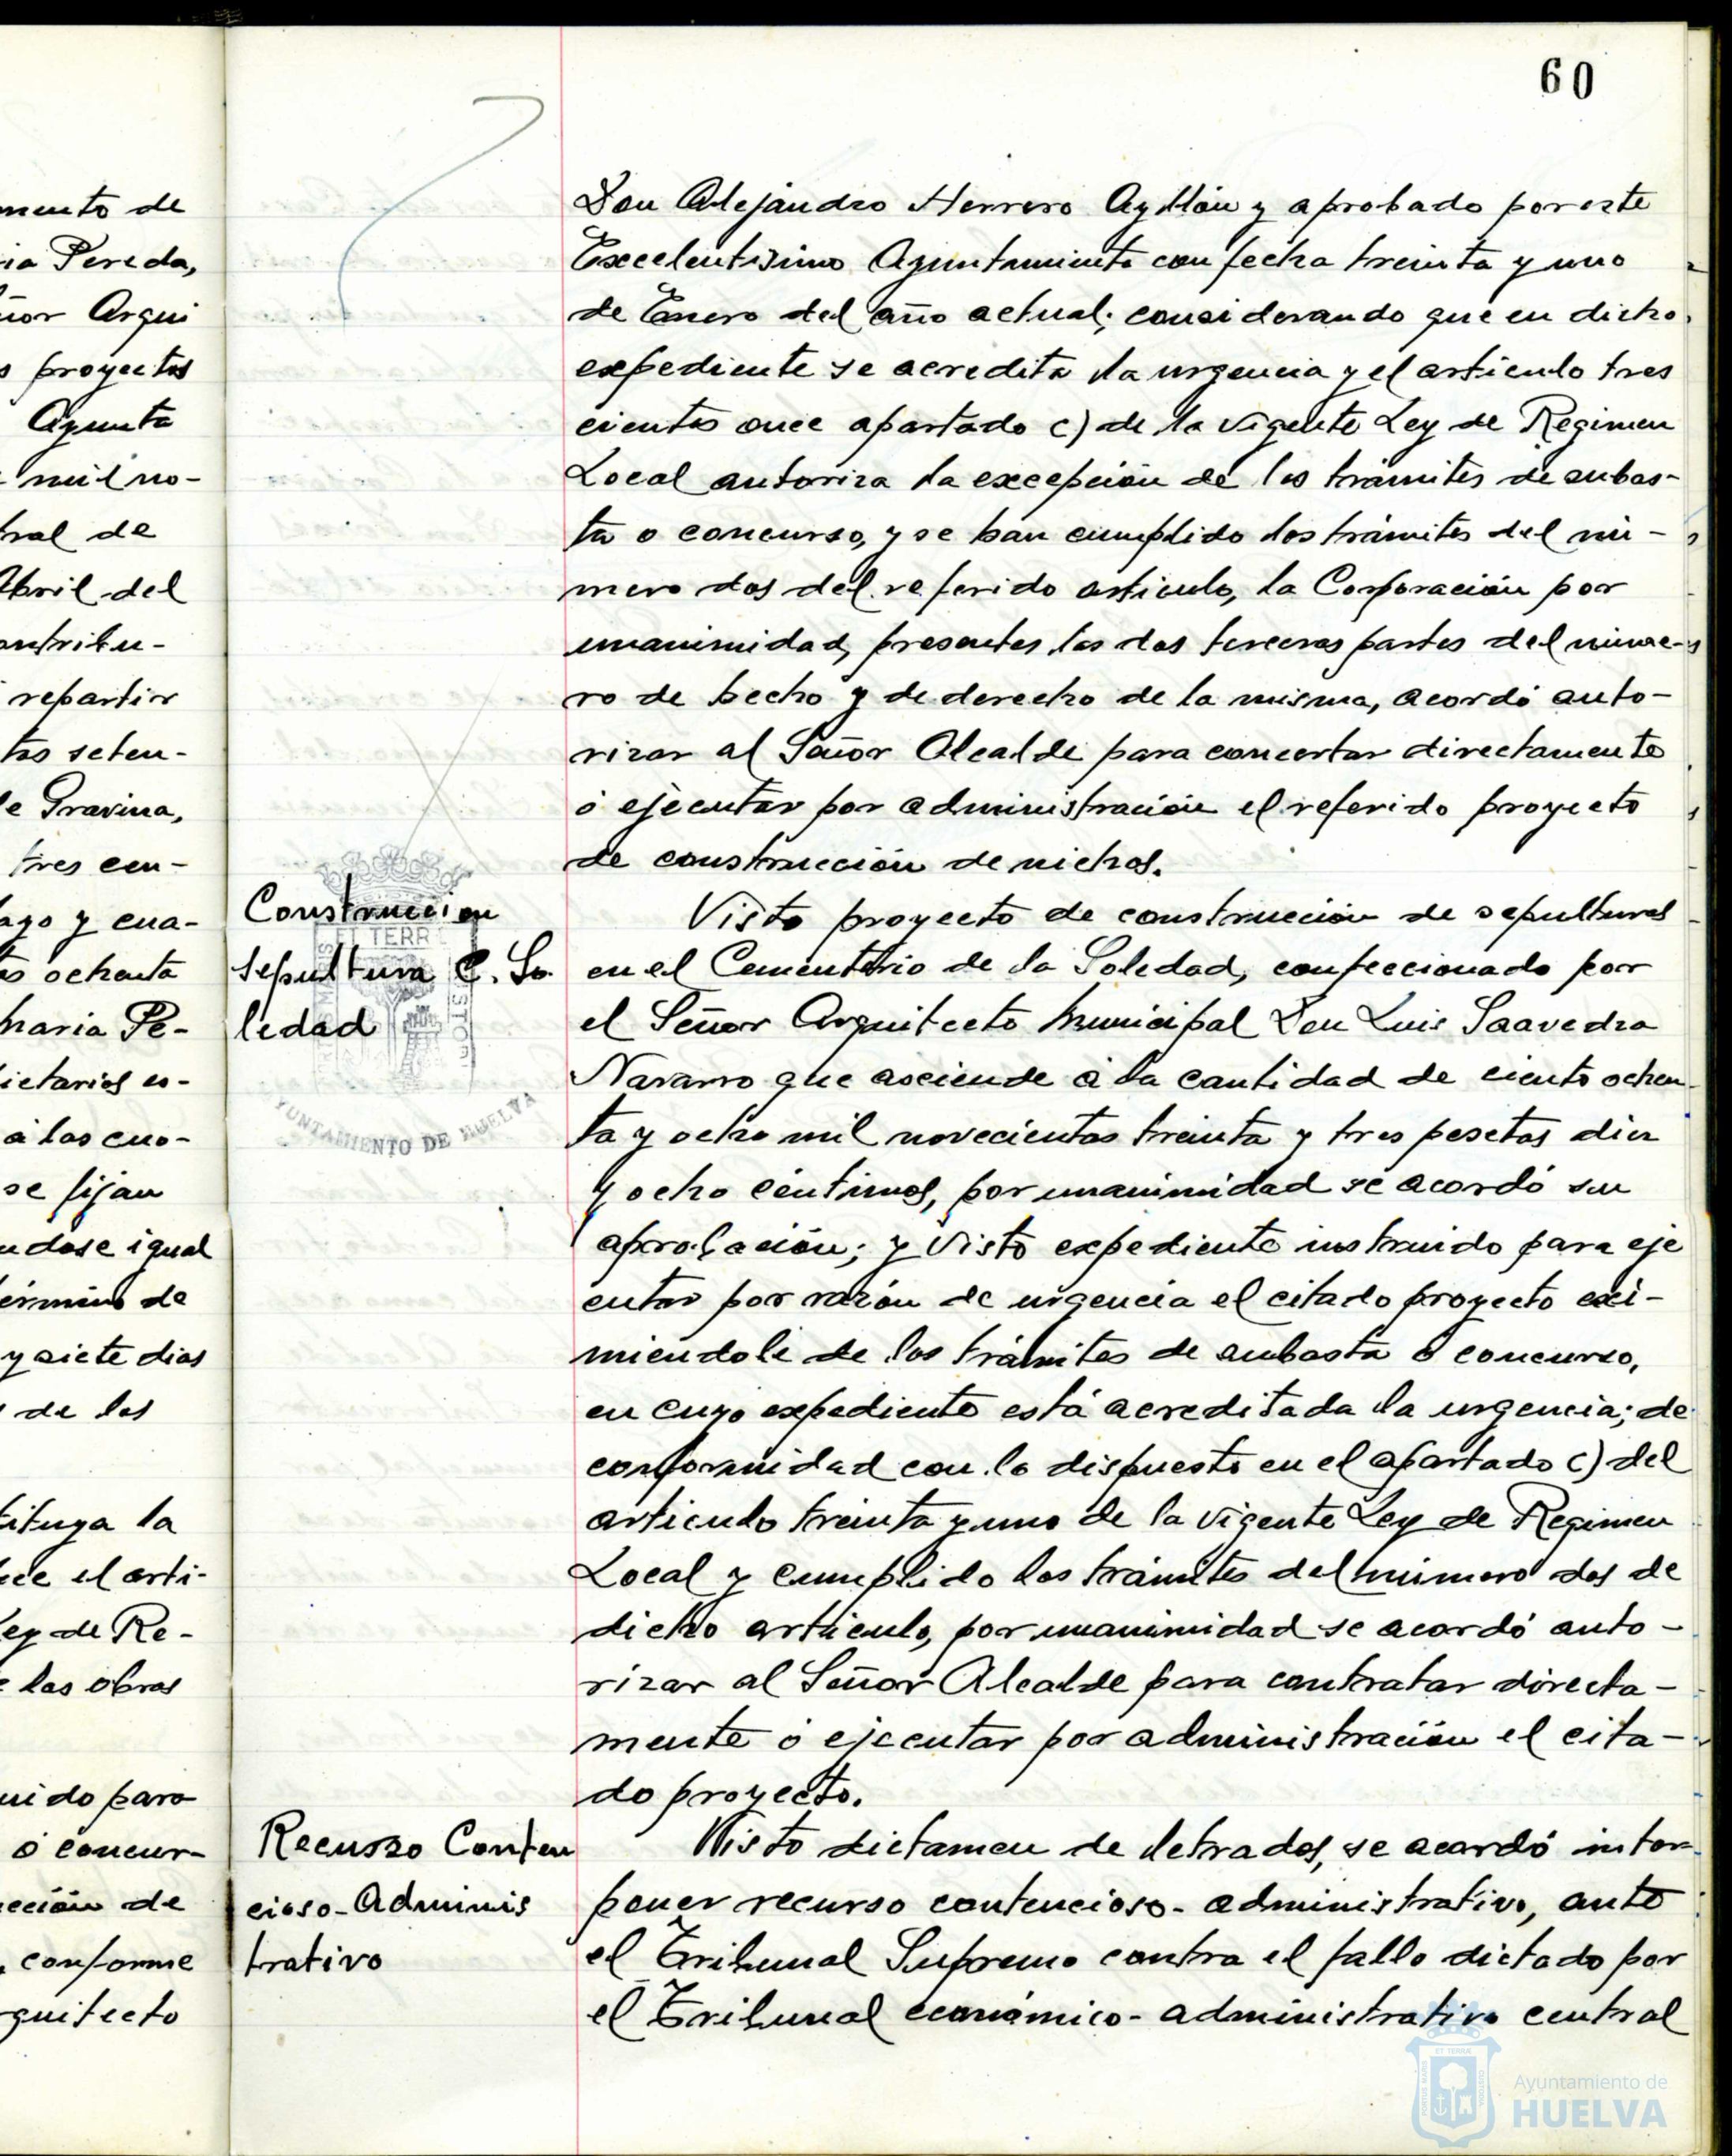 60
mento de
ia Pereda,
ñor Arqui
s proyectos
Ayunta
mil no-
tral de
Abril del
ontribu-
repartir
tas seten-
le Gravina,
tres cen-
ago y cua-
tes ochenta
haria Pe-
ietarios es-
á las cuo-
se fijan
ndose igual
érmino de
y siete dias
de los
tituya la
ece el arti-
ey de Re-
e las obras
uido para
ó concur-
cción de
, conforme
rquitecto
Don Alejandro Herrero Ayllón y aprobado por este
Excelentisimo Ayuntamiento con fecha treinta y uno
de Enero del año actual; considerando que en dicho
expediente se acredita la urgencia y el articulo tres
cientos once apartado c) de la vigente Ley de Regimen
Local autoriza la excepción de los trámites de subas-
ta o concurso, y se han cumplido los trámites del nú-
mero dos del referido articulo, la Corporación por
unanimidad, presentes las dos terceras partes del núme-
ro de hecho y de derecho de la misma, acordó auto-
rizar al Señor Alcalde para concertar directamente
ó ejecutar por administración el referido proyecto
de construcción de nichos.
Construccion
sepultura C. So
ledad
ET TERR
AYUNTAMIENTO DE HUELVA
Visto proyecto de construcción de sepulturas
en el Cementerio de la Soledad, confeccionado por
el Señor Arquitecto Municipal Don Luis Saavedra
Navarro que asciende á la cantidad de ciento ochen
ta y ocho mil novecientas treinta y tres pesetas diez
y ocho céntimos, por unanimidad se acordó su
aprobación; y visto expediente instruido para eje
cutar por razón de urgencia el citado proyecto exi-
miendole de los trámites de subasta ó concurso,
en cuyo expediente está acreditada la urgencia; de
conformidad con lo dispuesto en el apartado c) del
articulo treinta y uno de la vigente Ley de Regimen
Local y cumplido los trámites del número dos de
dicho articulo, por unanimidad se acordó auto-
rizar al Señor Alcalde para contratar directa-
mente ó ejecutar por administración el cita-
do proyecto.
Recurso Conten
cioso-Adminis
trativo
Visto dictamen de letrados, se acordó inter
poner recurso contencioso-administrativo, ante
el Tribunal Supremo contra el fallo dictado por
el Tribunal económico-administrativo central
Ayuntamiento de
HUELVA